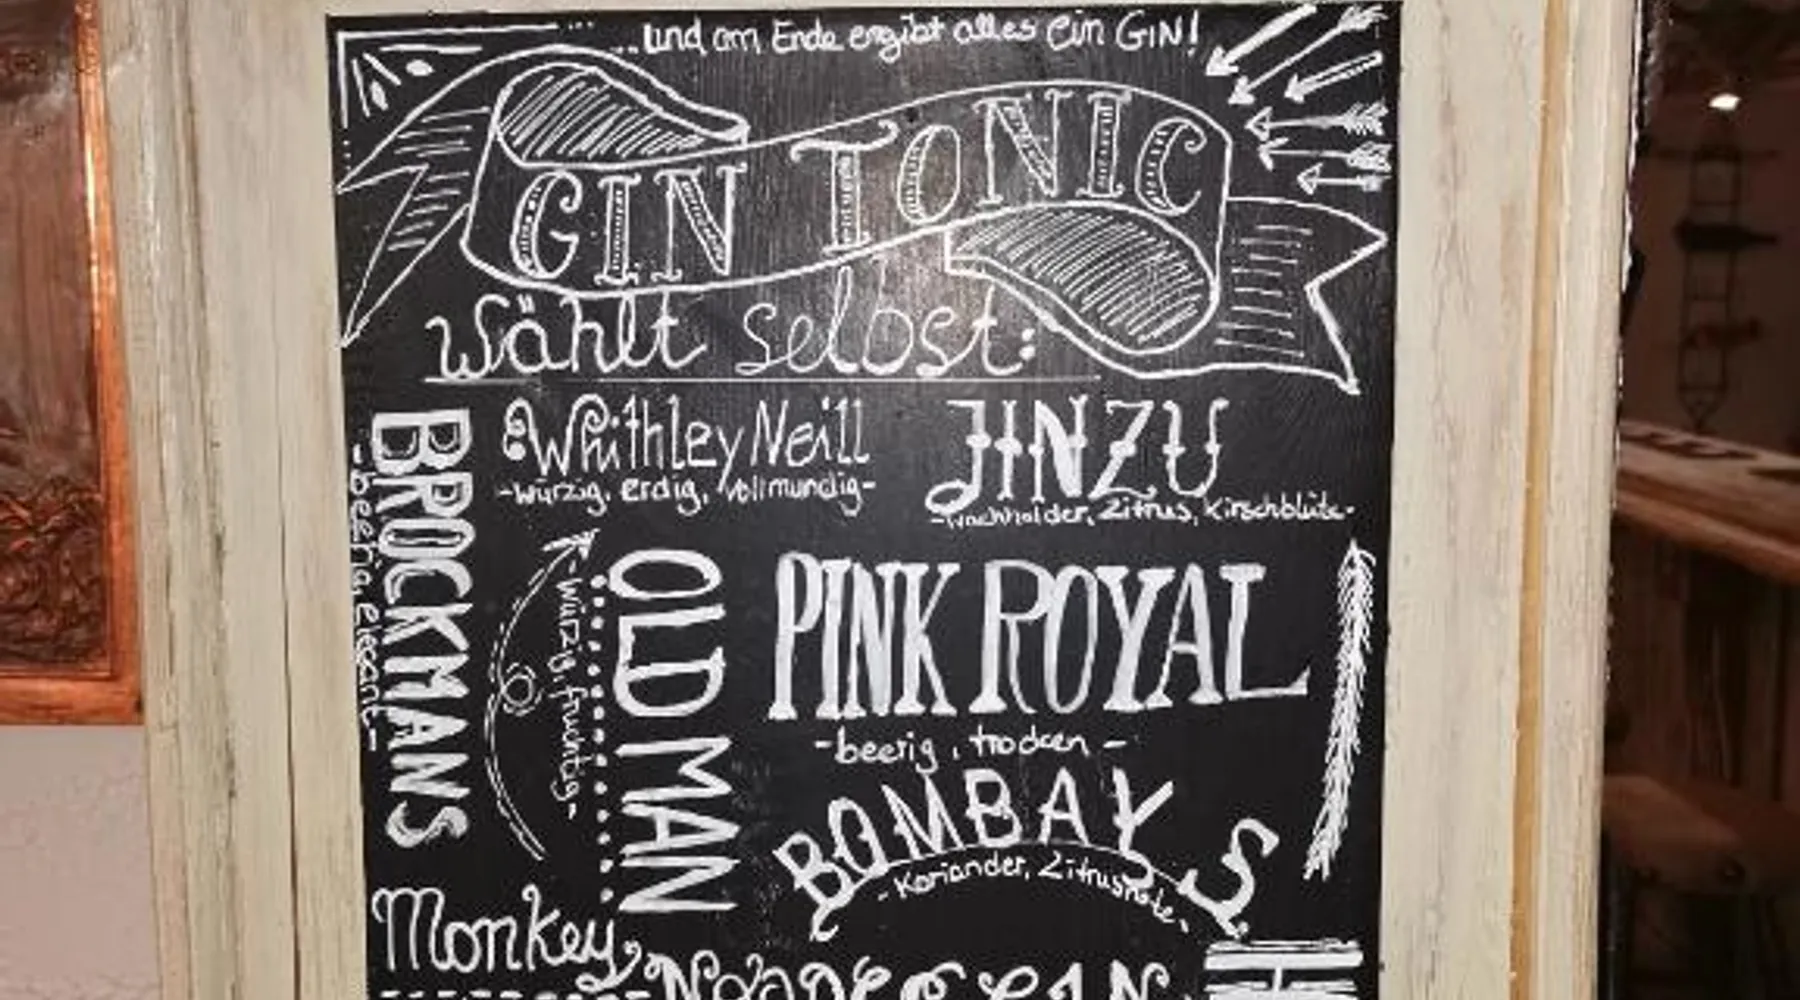 ...und am Ende ergibt alles ein GIN!
GIN TONIC
wählt selbst:
BROCKMANS
-beerig, elegant-
Whithley Neill
-würzig, erdig, vollmundig-
JINZU
-Wachholder, Zitrus, Kirschblüte-
OLD MAN
-würzig, fruchtig-
PINK ROYAL
-beerig, trocken-
BOMBAY S.
-Koriander, Zitrusnote-
Monkey